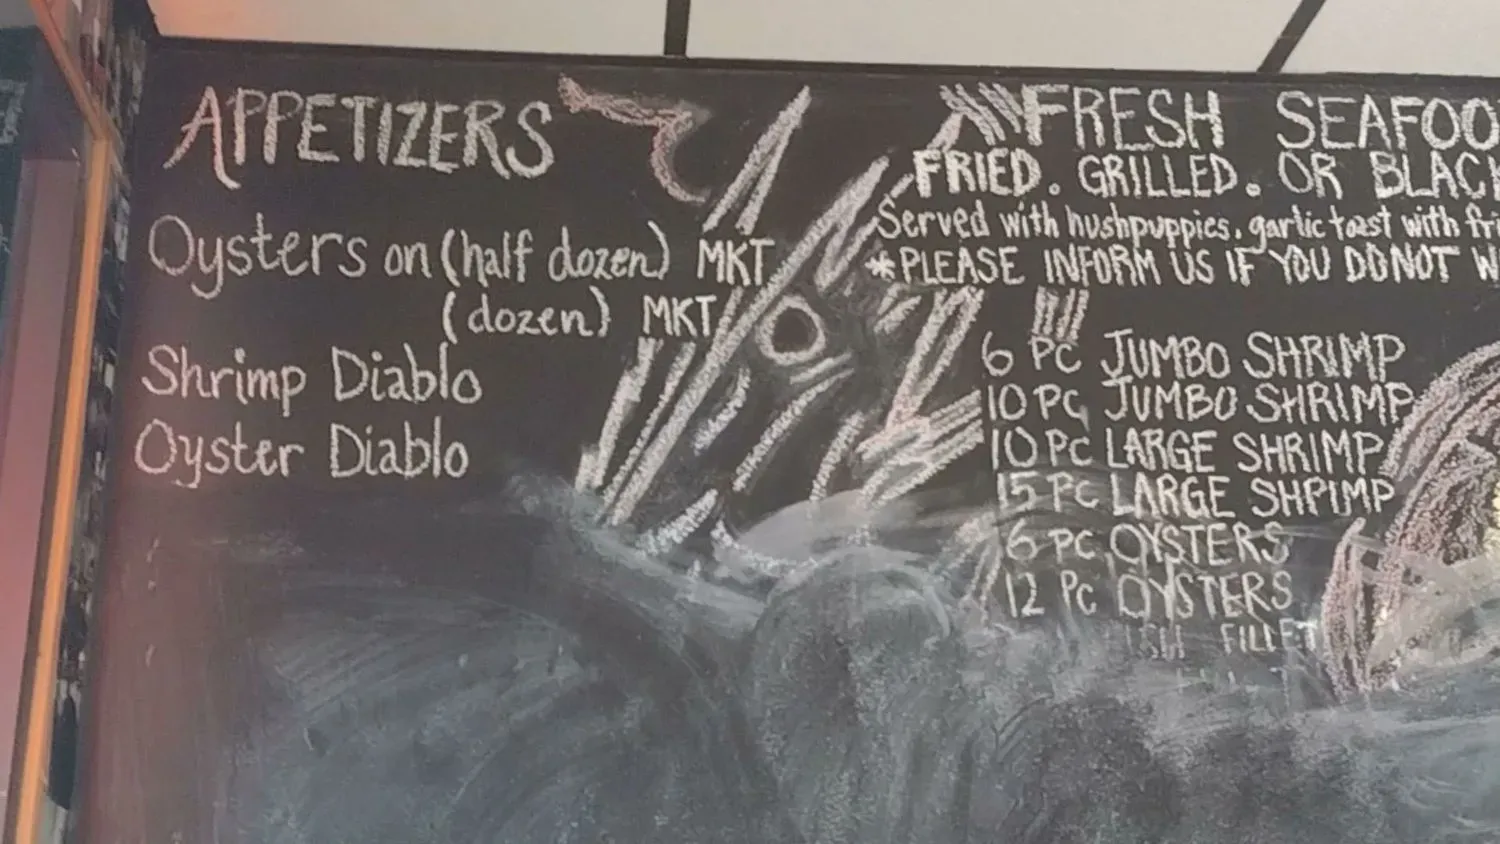 APPETIZERS
Oysters on (half dozen) MKT
(dozen) MKT
Shrimp Diablo
Oyster Diablo
FRESH SEAFOO
FRIED. GRILLED. OR BLACK
Served with hushpuppies, garlic toast with fri
*PLEASE INFORM US IF YOU DO NOT W
6 PC JUMBO SHRIMP
10 PC JUMBO SHRIMP
10 PC LARGE SHRIMP
15 PC LARGE SHRIMP
6 PC OYSTERS
12 PC OYSTERS
FILLET